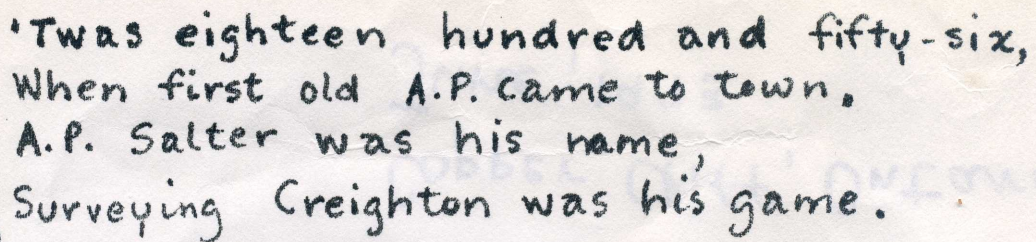 'Twas eighteen hundred and fifty-six,
When first old A.P. came to town.
A.P. Salter was his name,
Surveying Creighton was his game.